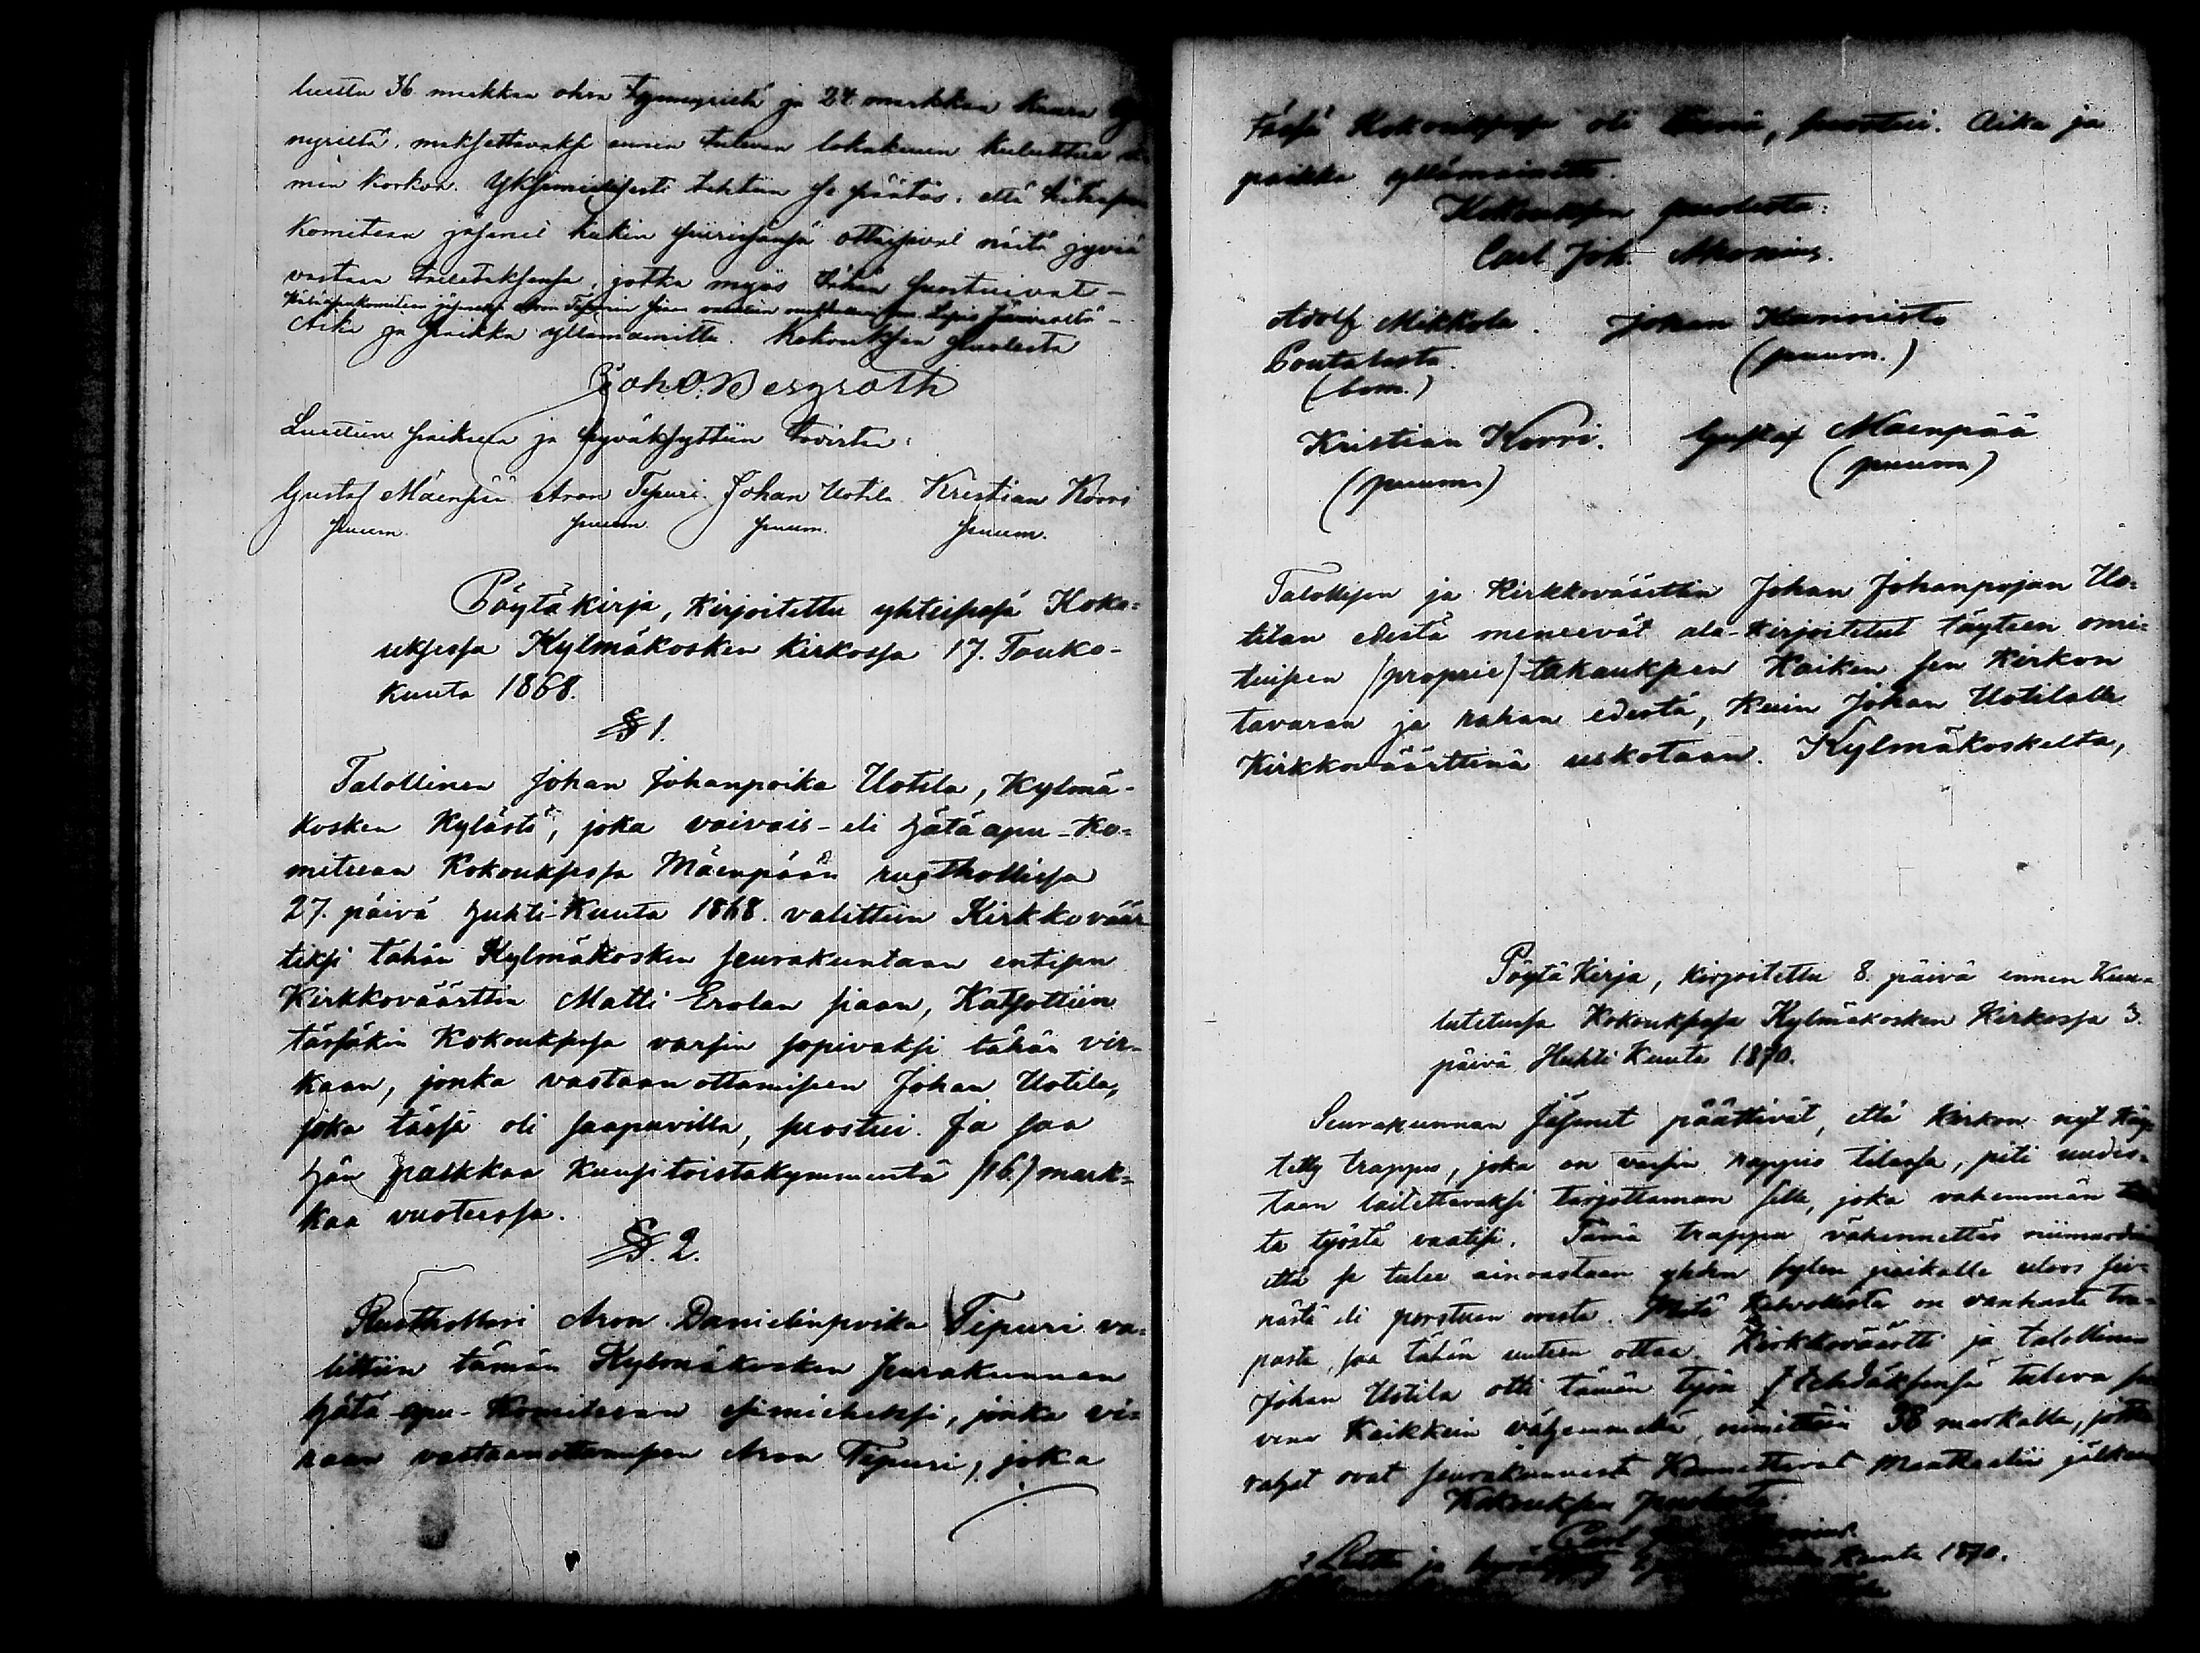 luulta 36 markkaa ohra tynnyristä ja 24 markkaa kaura
nyristä, maksettavaksi ennen tulevan lokakuun kuluttua
min korkoa. Yksimielisesti tehtiin se päätös, että hätäapu
Komitean jäsenet kukin piirisänsä ottaisivat näitä jyviä
vastaan talletaksensa, jotka myös tähän suostuivat –
Aika ja paikka ylämainittu. Kokouksen puolesta
Joh. O. Bergroth
Luettiin paikalla ja hyväksyttiin todistaa:
Gustaf Mäenpää Aron Tipuri. Johan Uotila Kristian Korri
puum. puum. puum. puum.
Pöytäkirja, kirjoitettu yhteisesä Koko=
uksessa Kylmäkosken kirkossa 17. Touko-
kuuta 1868.
§ 1.
Talollinen Johan Johanpoika Uotila, Kylmä-
kosken Kylästä, joka vaivais- eli hätäapu-Ko=
mitean Kokouksessa Mäenpään rusthollissa
27. päivä huhti-Kuuta 1868. valittiin Kirkkoväär
tiksi tähän Kylmäkosken seurakuntaan entisen
Kirkkoväärttin Matti Erolan siaan, Katsottiin
tässäkin Kokouksessa varsin sopivaksi tähän vir-
kaan, jonka vastaanottamisen Johan Uotila,
joka tässä oli saapuvilla, suostui. Ja saa
hän palkkaa kuusitoistakymmentä /16/ mark=
kaa vuoteessa.
§. 2.
Rusthollari Aron Danielinpoika Tipuri va=
littiin tämän Kylmäkosken seurakunnan
hätä-apu-Komitean esimieheksi, jonka vi=
raan vastaanottamisen Aron Tipuri, joka
tässä Kokouksessa oli läsnä, suostui. Aika ja
paikka yllämainittu.
Kokouksen puolesta:
Carl Joh.
Adolf Mikkola. Johan Kannisto
Poutalasta. (puum.)
(bom.)
Kristian Korri. Gustaf Mäenpää
(puum.) (puum)
Talollisen ja Kirkkoväärttin Johan Johanpojan Uo=
tilan edestä meneevät ala-kirjoitetut täyteen omi=
tuisen /proprie/ takauksen Kaiken sen Kirkon
tavaran ja rahan edestä, kuin Johan Uotilalle
Kirkkoväärttinä uskotaan. Kylmäkoskelta,
Pöytä Kirja, kirjoitettu 8. päivä ennen Kuu=
lutetussa Kokouksessa Kylmäkosken Kirkossa 3.
päivä Huhti Kuuta 1870.
Seurakunnan Jäsenet päättivät, että kirkon nyt käy
tetty trappu, joka on varsin rappio tilassa, piti uudes=
taan laitettavaksi tarjottaman sille, joka vähemmän
ta työstä vaatisi. Tämä trappu vähennettäs niinmuodoin
että se tulee ainoastaan yhden sylen paikalle uloos sei=
nästä eli porstuan ovesta. Mitä kelvollista on vanhasta tra=
pusta, saa tähän uuteen ottaa. Kirkkoväärtti ja talollinen
Johan Uotila otti tämän työn tehdäksensä tuleva su
vena kaikkein vähemmällä, nimittäin 38 markalla, jotka
rahat ovat seurakunnasta Kannettavat Manttaalin jälkeen
Kokouksen puolesta:
Carl
ja Kuuta 1870.